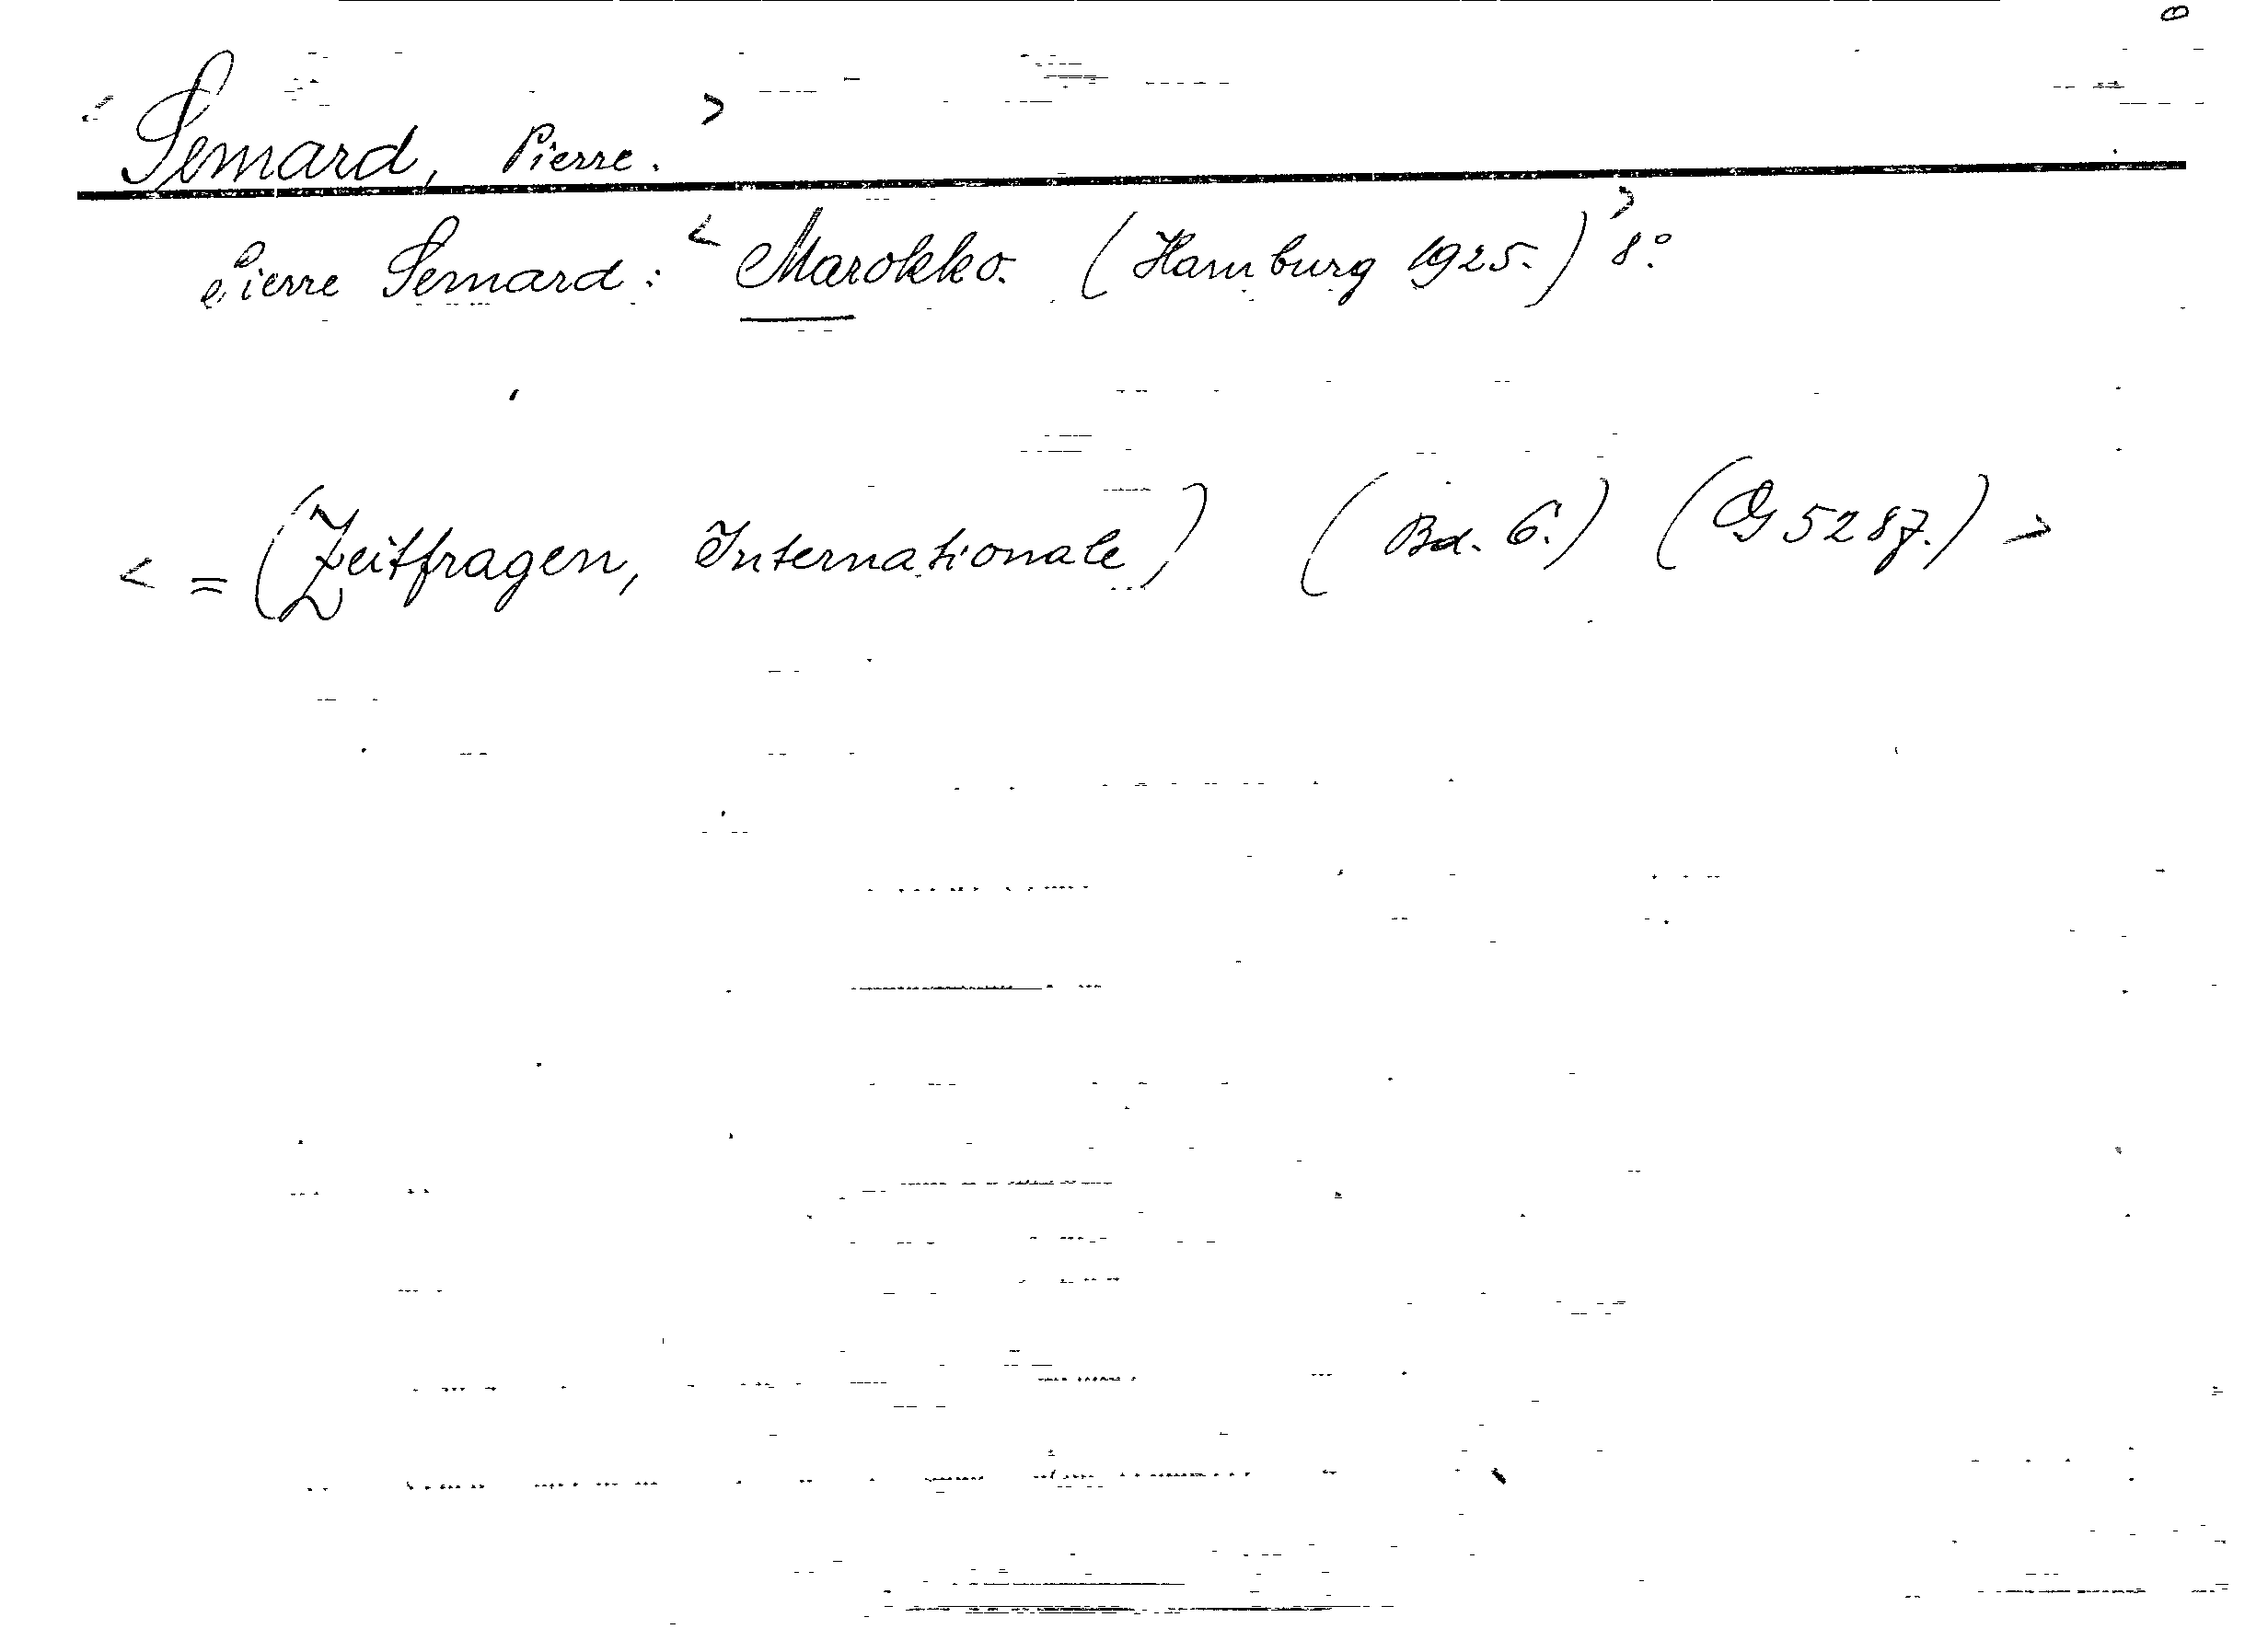 < Semard, Pierre. >
Pierre Semard: < Marokko. (Hamburg 1925.) > 8°.
< = (Zeitfragen, Internationale) (Bd. 6.) (G 5287.) >